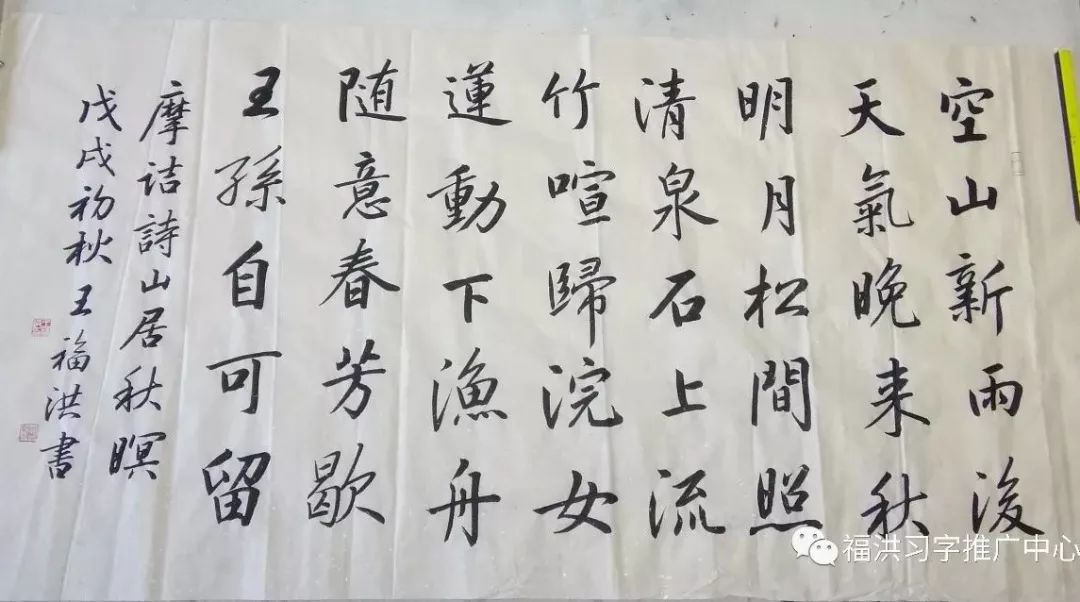 空山新雨後
天氣晚来秋
明月松間照
清泉石上流
竹喧歸浣女
蓮動下漁舟
随意春芳歇
王孫自可留
摩詰詩山居秋暝
戊戌初秋王福洪书
福洪习字推广中心